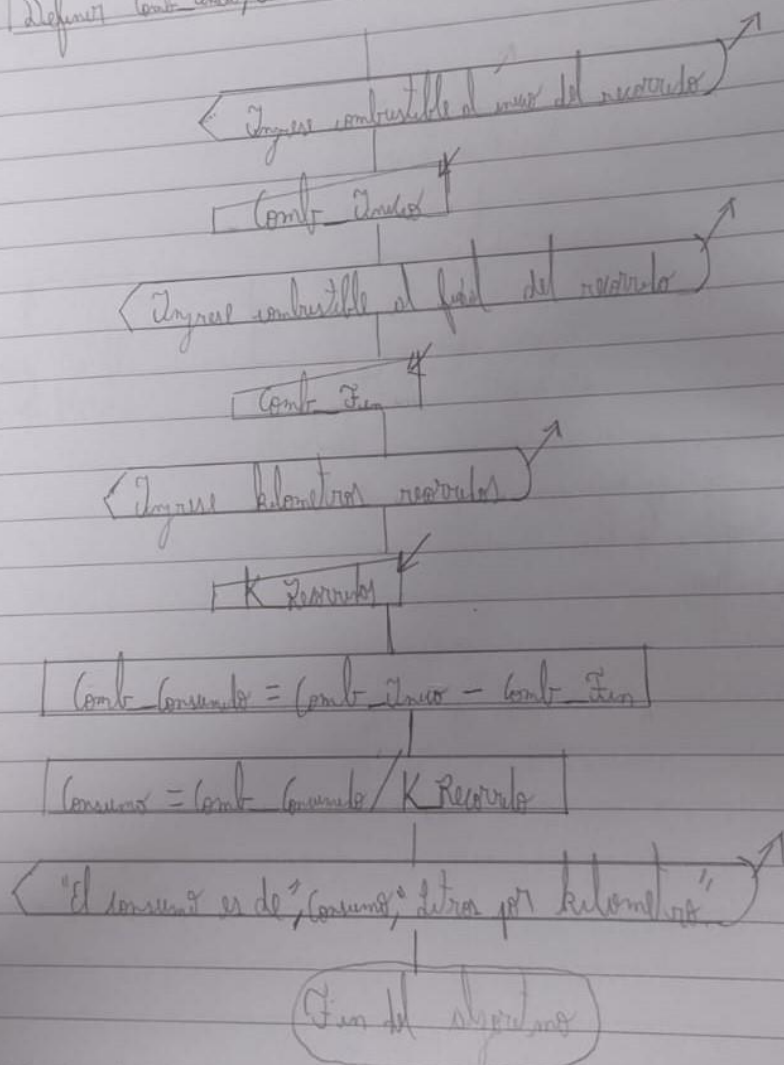 Definir
Ingrese combustible al inicio del recorrido
Comb_Inicio
Ingrese combustible al final del recorrido
Comb_Fin
Ingrese kilometros recorridos
K Recorridos
Comb_Consumido = Comb_Inicio - Comb_Fin
Consumo = Comb_Consumido / K_Recorrido
"El consumo es de", Consumo, "Litros por kilometro"
Fin del algoritmo